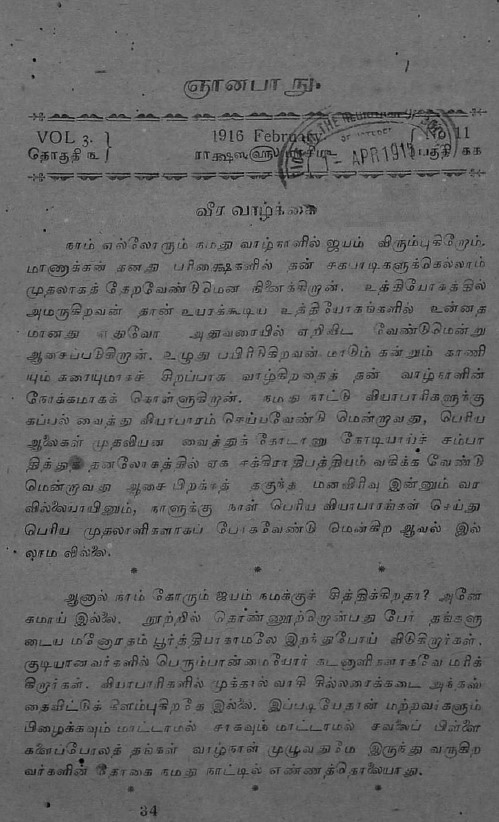 ஞானபாநு.
VOL 3.
1916 February
No 11
தொகுதி ௩
ராக்ஷஸ
பகுதி ௧௧
APR 1916
வீர வாழ்க்கை
நாம் எல்லோரும் நமது வாழ்நாளில் ஜயம் விரும்புகிறோம்.
மாணாக்கன் தனது பரிக்ஷைகளில் தன் சகபாடிகளுக்கெல்லாம்
முதலாகத் தேறவேண்டுமென நினைக்கிறான். உத்தியோகத்தில்
அமருகிறவன் தான் உயரக்கூடிய உத்தியோகங்களில் உன்னத
மானது எதுவோ அதுவரையில் எறிவிட வேண்டுமென்று
ஆசைப்படுகிறான். உழுது பயிரிடுகிறவன் மாடும் கன்றும் காணி
யும் கரையுமாகச் சிறப்பாக வாழ்கிறதைத் தன் வாழ்நாளின்
நோக்கமாகக் கொள்ளுகிறான். நமது நாட்டு வியாபாரிகளுக்கு
கப்பல் வைத்து வியாபாரம் செய்யவேண்டு மென்றாவது, பெரிய
ஆலைகள் முதலியன வைத்துக் கோடானு கோடியாய்ச் சம்பா
தித்துத் தனலோகத்தில் ஏக சக்கிராதிபத்தியம் வகிக்க வேண்டு
மென்றாவது ஆசை பிறக்கத் தகுந்த மனவிரிவு இன்னும் வர
வில்லையாயினும், நாளுக்கு நாள் பெரிய வியாபாரங்கள் செய்து
பெரிய முதலாளிகளாகப் போகவேண்டு மென்கிற ஆவல் இல்
லாம வில்லை.
* * *
ஆனால் நாம் கோரும் ஜயம் நமக்குச் சித்திக்கிறதா? அனே
கமாய் இல்லை. நூற்றில் தொண்ணூற்றொன்பது பேர் தங்களு
டைய மனோரதம் பூர்த்தியாகாமலே இறந்துபோய் விடுகிறார்கள்.
குடியானவர்களில் பெரும்பான்மையோர் கடனாளிகளாகவே மரிக்
கிறார்கள். வியாபாரிகளில் முக்கால் வாசி சில்லரைக்கடை அந்தஸ்
தைவிட்டுக் கிளம்புகிறதே இல்லை. இப்படியேதான் மற்றவர்களும்
பிழைக்கவும் மாட்டாமல் சாகவும் மாட்டாமல் சவலைப் பிள்ளை
களைப்போலத் தங்கள் வாழ்நாள் முழுவதுமே இருந்து வருகிற
வர்களின் தொகை நமது நாட்டில் எண்ணத்தொலையாது.
* * *
34